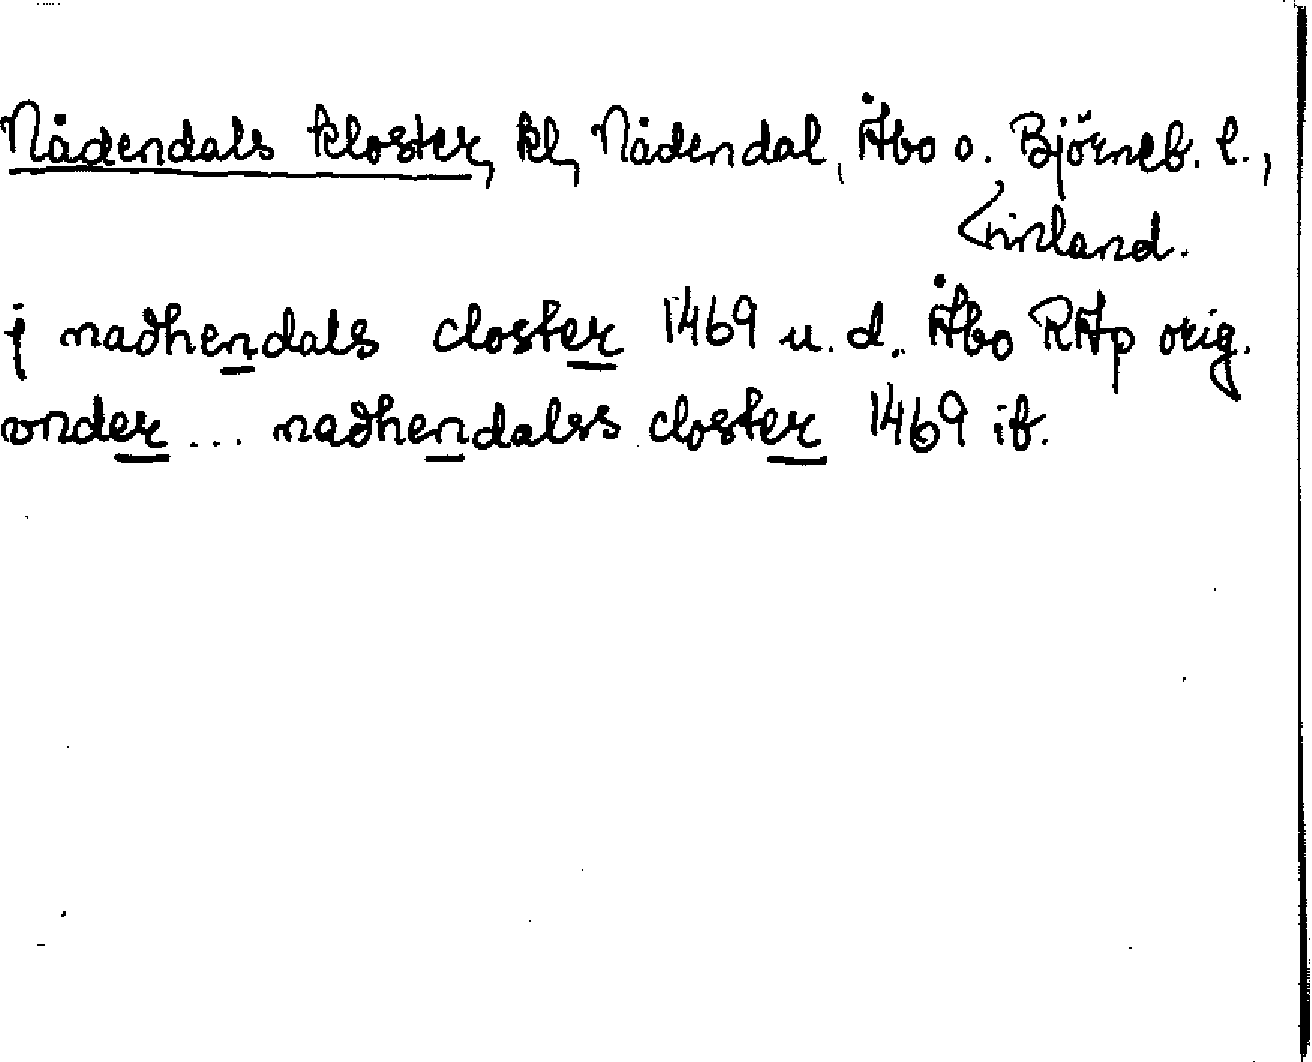 Nådendals kloster, kl, Nådendal, Åbo o. Björneb. l.,
Finland.
j nadhendals closter 1469 u. d. Åbo RAp orig.
vnder ... nadhendalss closter 1469 ib.